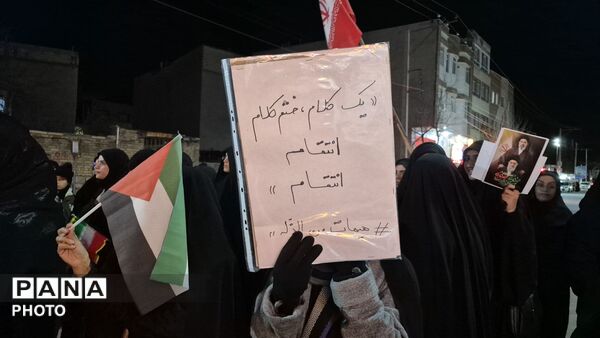 «یک کلام، ختم کلام
انتقام
انتقام»
#هیهات من الذّله»
PANA
PHOTO